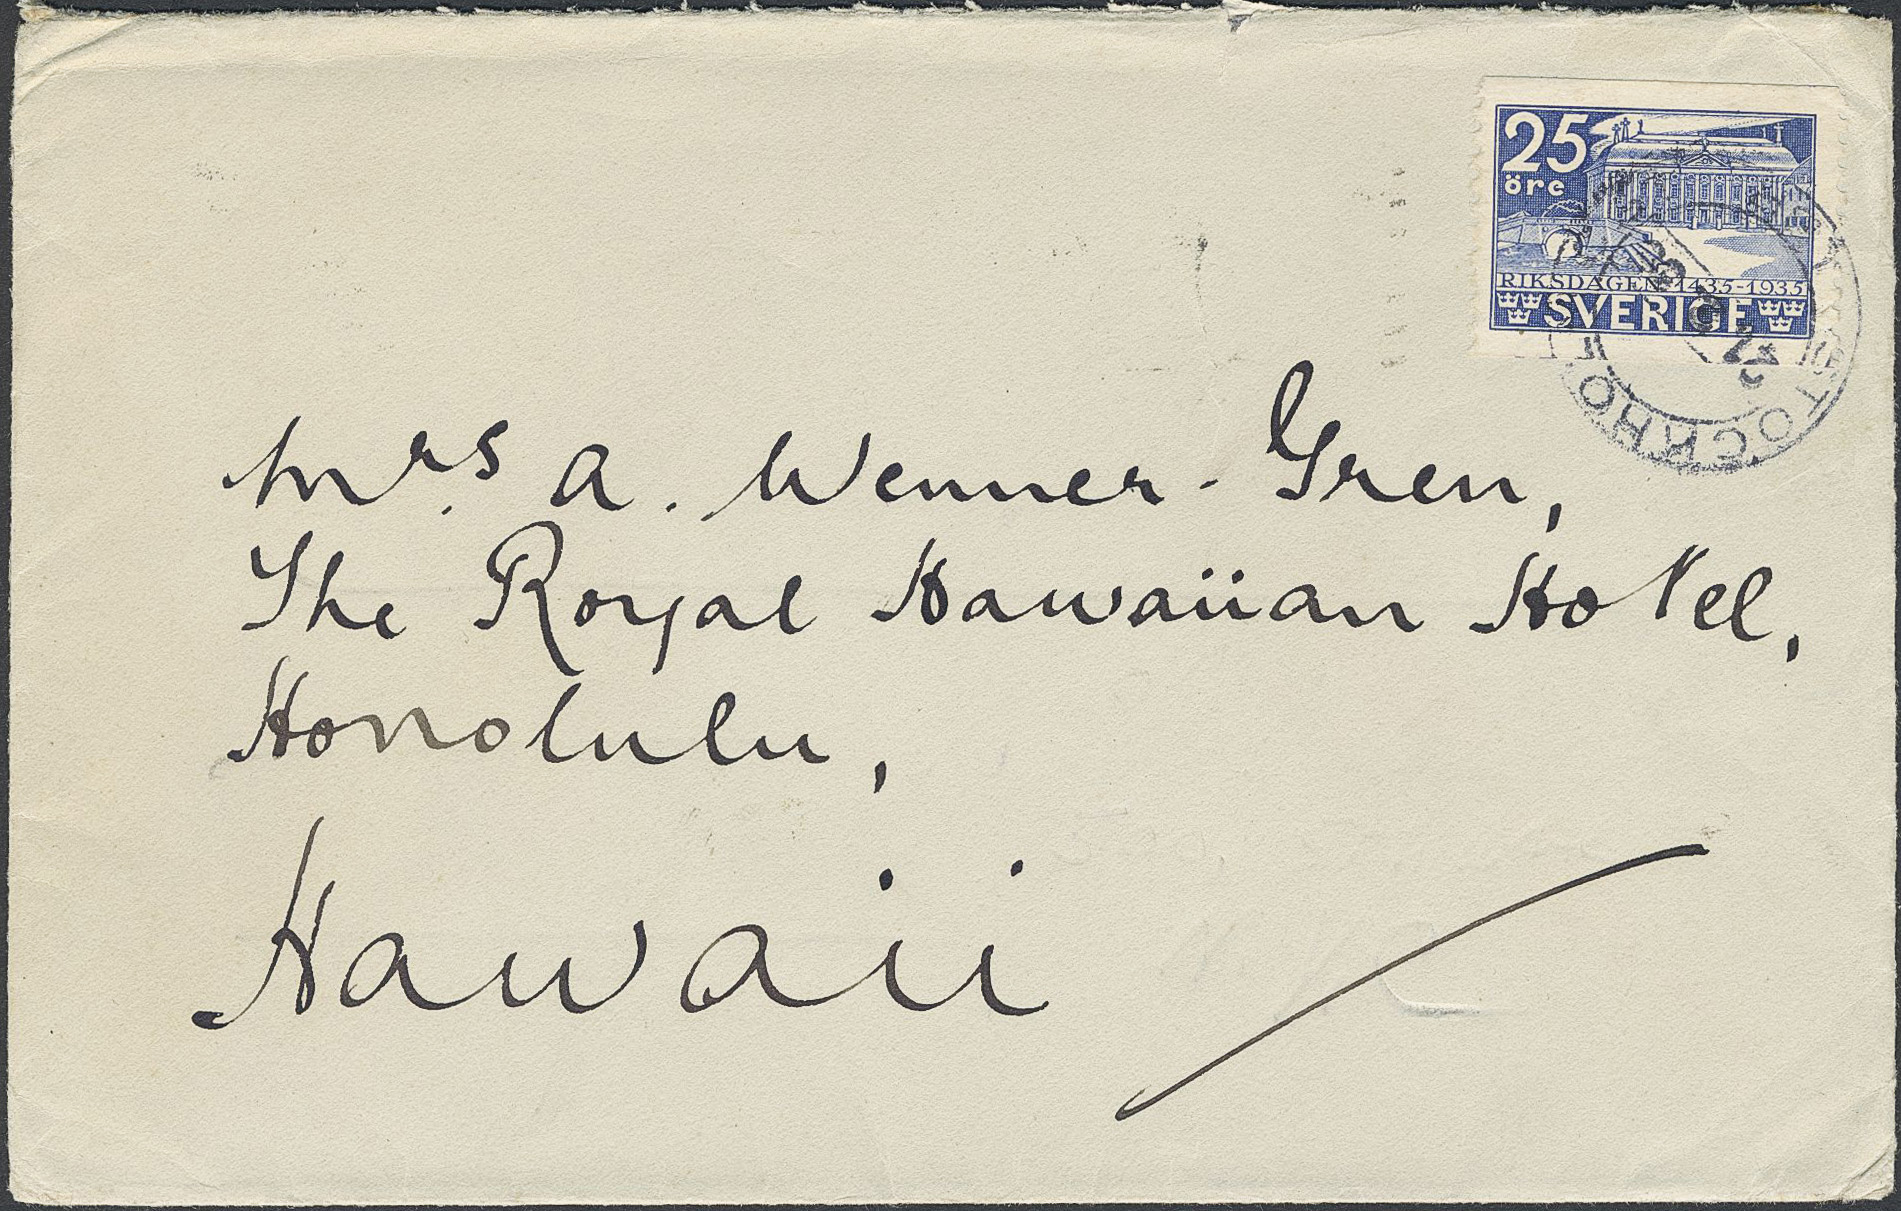 25
öre
RIKSDAGEN 1435-1935
SVERIGE
STOCKHO
Mrs A. Wenner-Gren,
The Royal Hawaiian Hotel,
Honolulu,
Hawaii